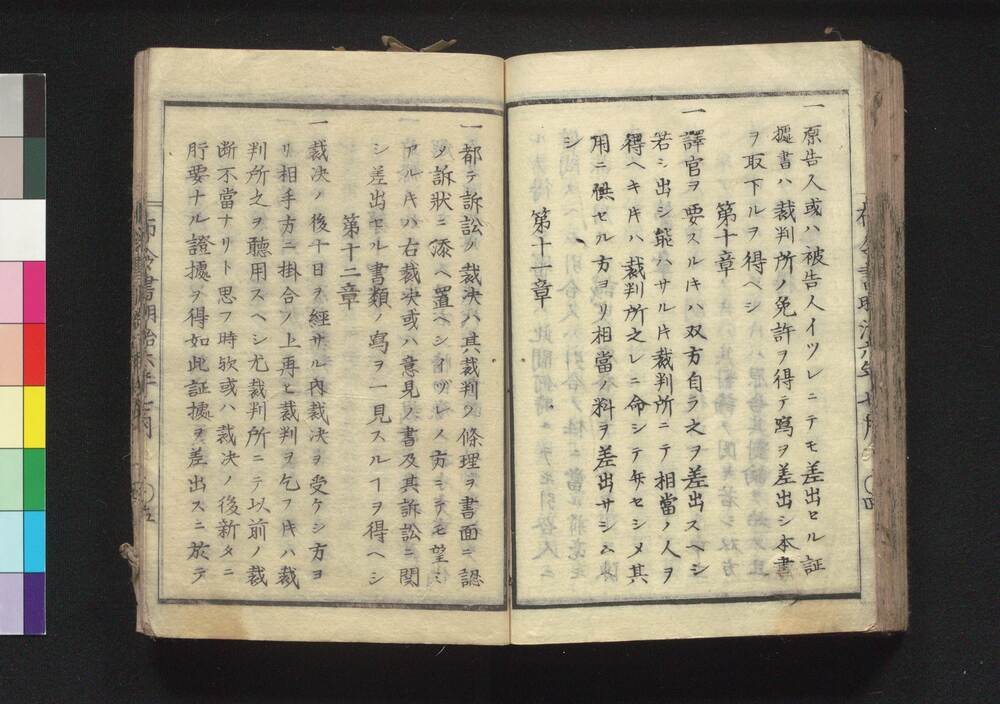 一 原告人或ハ被告人イツレニテモ差出セル証
據書ハ裁判所ノ免許ヲ得テ寫ヲ差出シ本書
ヲ取下ルヲ得ベシ
第十章
一 譯官ヲ要スルヰハ双方自ラ之ヲ差出スヘシ
若シ出シ能ハサル片裁判所ニテ相當ノ人ヲ
得ヘキ片ハ裁判所之レニ命シテ せシメ其
用ニ供セル方ヨリ相當ノ料ヲ差出サシム
シ
第十一章
一 都テ訴訟ノ裁決ハ其裁判ノ條理ヲ書面ニ認
メ訴狀ニ添ヘ置ヘシイヅレノ方ニテモ望ミ
アル片ハ右裁決或ハ意見ノ書及其訴訟ニ関
シ差出セル書類ノ寫ヲ一見スルヿヲ得ヘシ
第十二章
一 裁決ノ後十日ヲ經サル內裁決ヲ受ケシ方ヨ
リ相手方ニ掛合ノ上再ヒ裁判ヲ乞フ片ハ裁
判所之ヲ聽用スヘシ尤裁判所ニテ以前ノ裁
断不當ナリト思フ時欤或ハ裁决ノ後新タニ
肝要ナル證據ヲ得如此証據ヲ差出スニ於テ
布令書明治六年七月